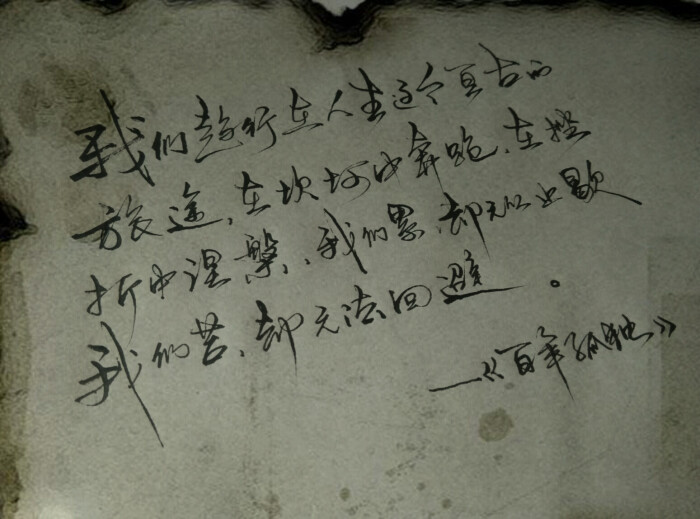 我们趋行在人生这个亘古的
旅途，在坎坷中奔跑，在挫
折中涅槃，我们累，却无从止歇
我们苦，却无法回避。
——《百年孤独》